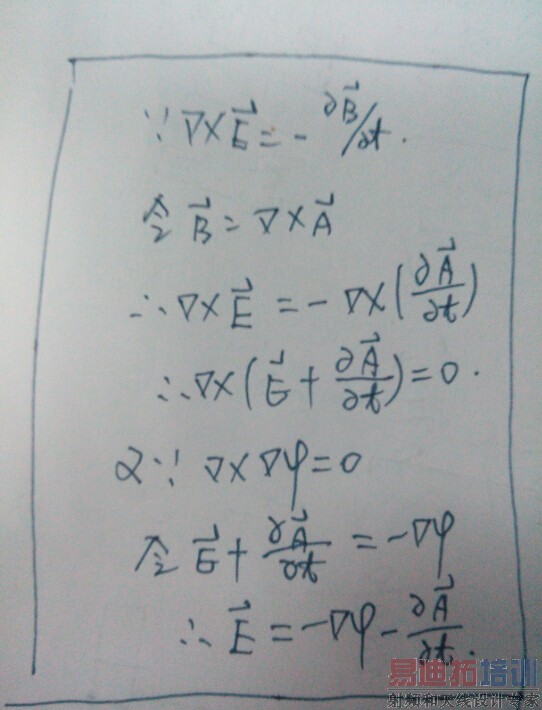 ∵ ∇×E⃗ = - ∂B⃗/∂t.
令 B⃗ = ∇×A⃗
∴ ∇×E⃗ = - ∇×(∂A⃗/∂t)
∴ ∇×(E⃗ + ∂A⃗/∂t) = 0.
又∵ ∇×∇φ = 0
令 E⃗ + ∂A⃗/∂t = -∇φ
∴ E⃗ = -∇φ - ∂A⃗/∂t.
易迪拓培训
射频和天线设计专家